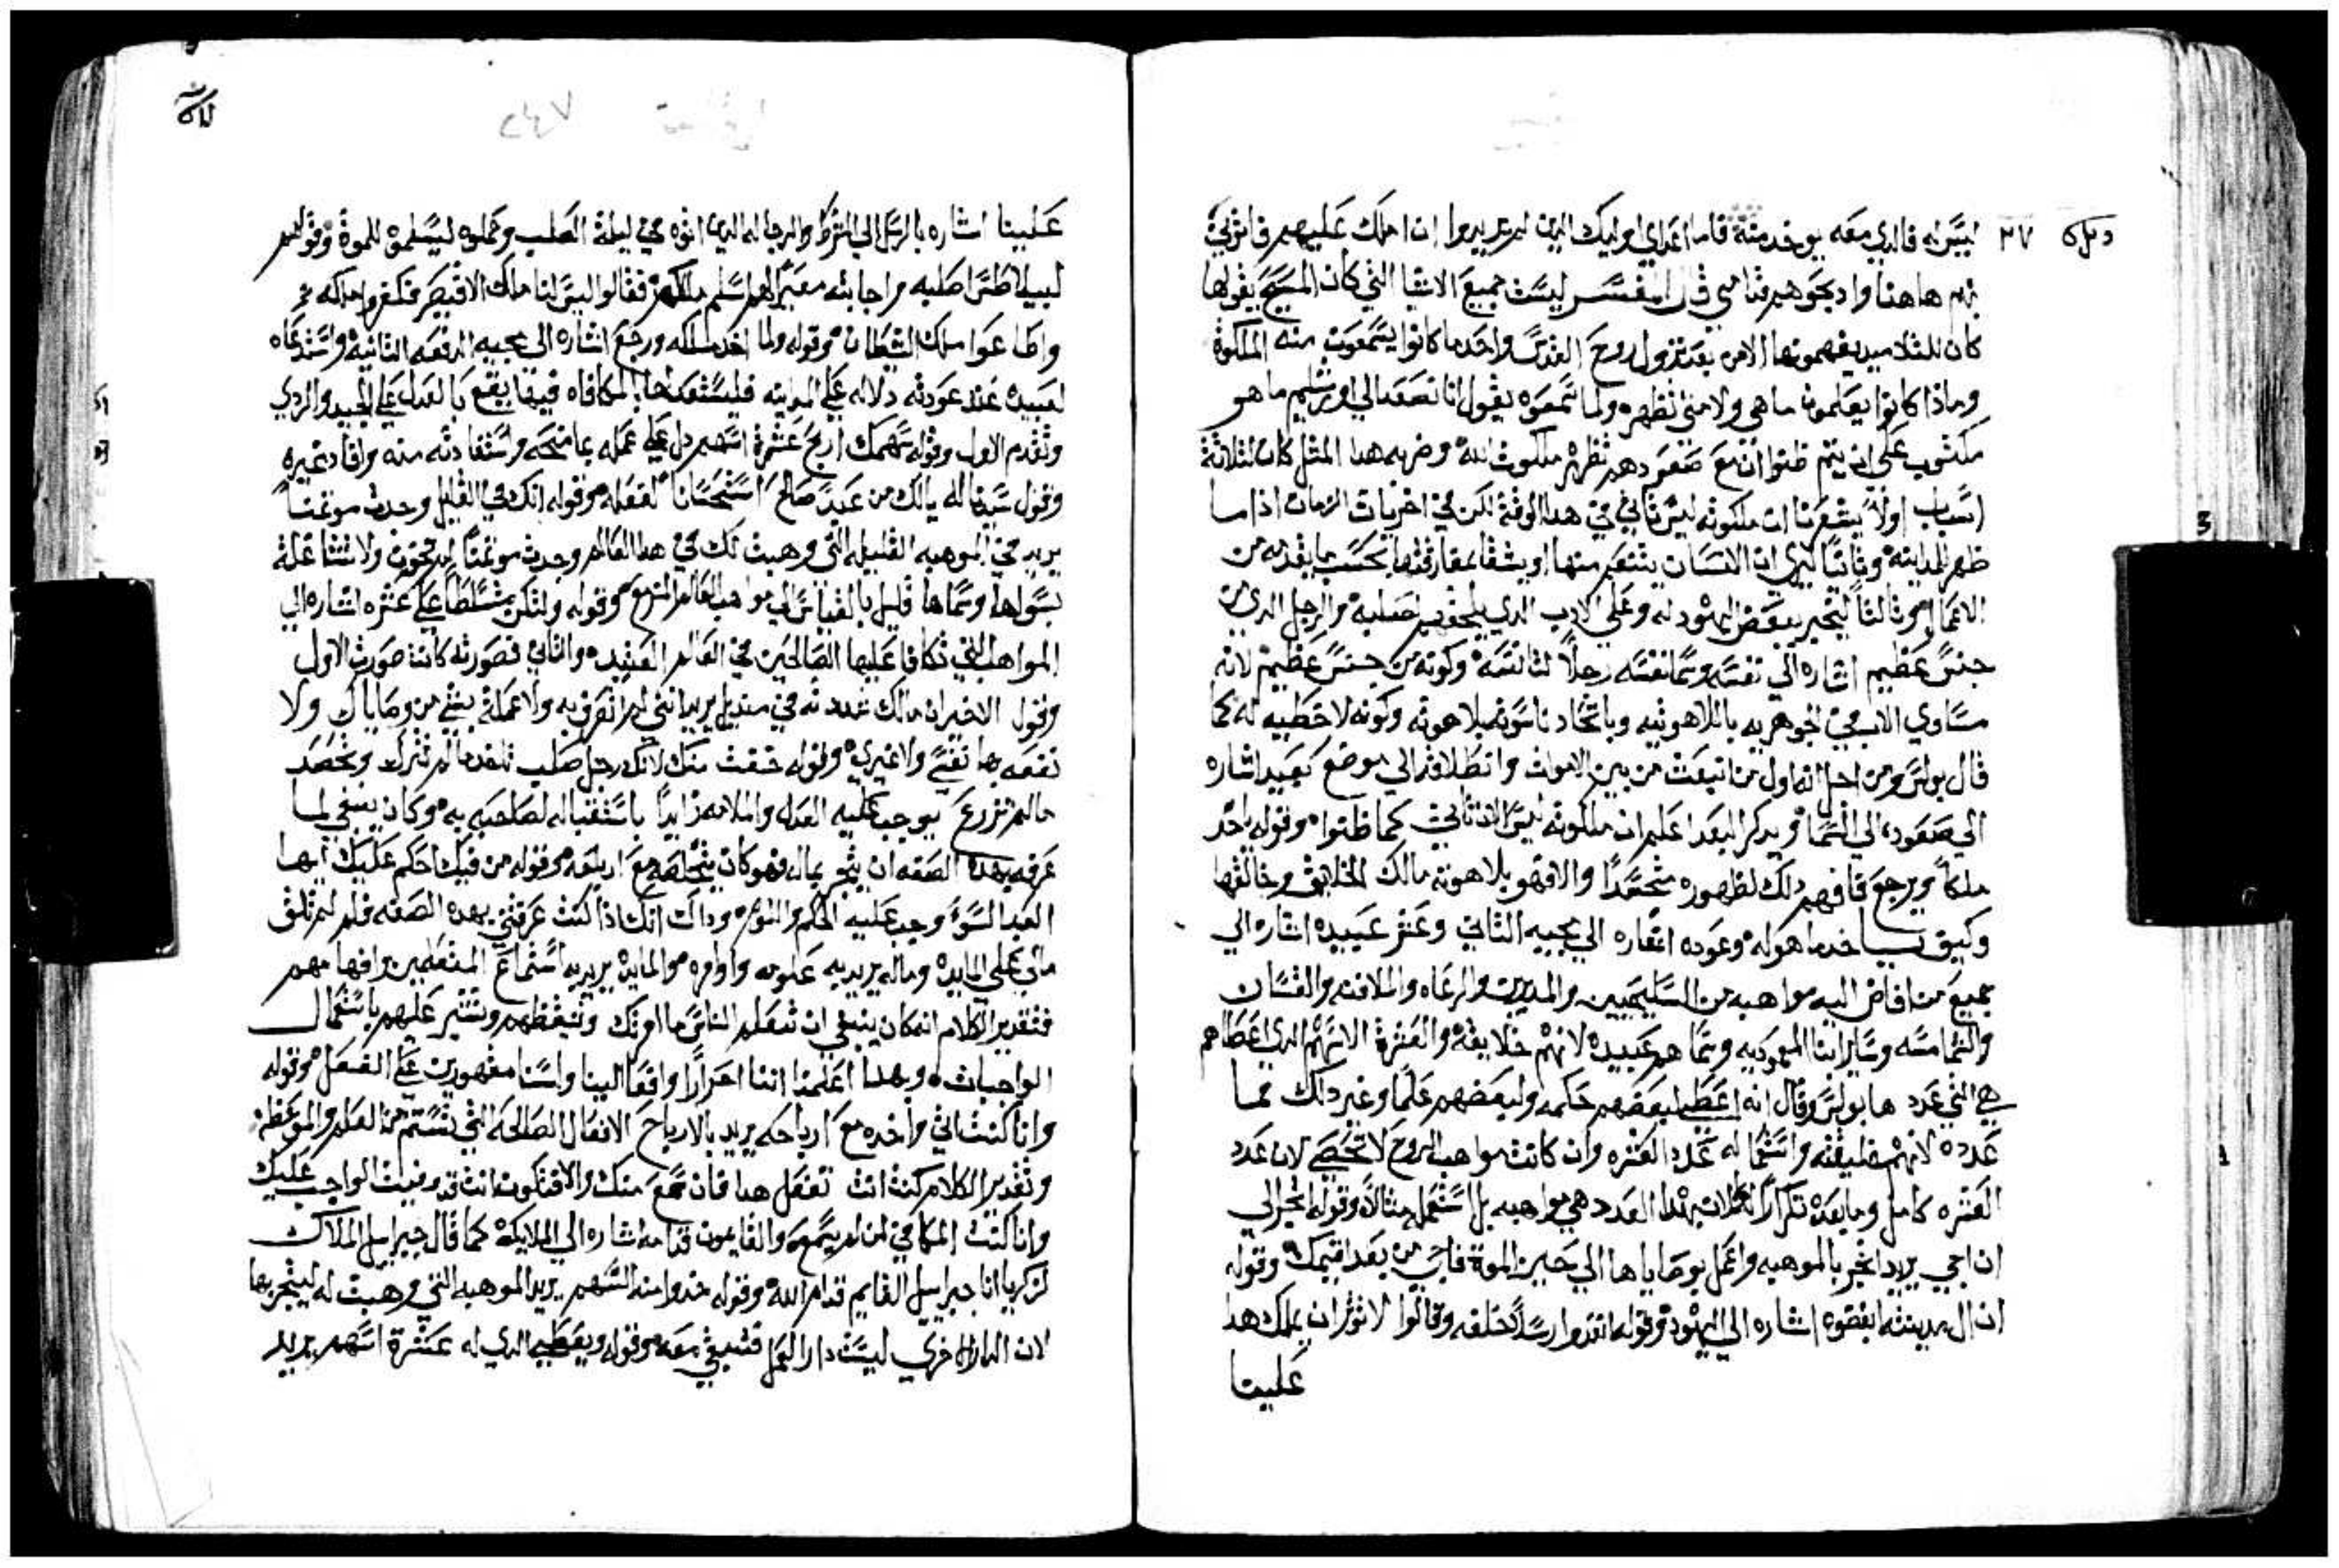 ليس له فالدي معه يوخد منه فاما اعداي اوليك الدين لم يريدوا ان املك عليهم فاتوني
بهم هاهنا وادبحوهم قدامي قال المفسر ليست جميع الاشيا التي كان المسيح يقولها
كان التلاميد يفهمونها الا من بعد نزول روح القدس واحد ما كانوا يسمعون منه الملكوة
وماذا كانوا يعلمون ما هي ولا متى تظهر ولما سمعوه يقول انا نصعد الي اورشليم ما هو
مكتوب علي ابن يتم ظنوا ان مع صعودهم تظهر ملكوت الله وضربه هدا المثل كان لثلاثة
اسباب اولاً يشعرنا ان ملكوته ليس تاتي في هدا الوقت لكن في اخريات الزمان اذا ما
ظهر للمداينه وثانياً ليري ان الانسان يتنعم منها او يشقا بمفارقتها بحسب ما يقدمه من
الاعمال وثالثاً ليخبر ببغض اليهود له وعلي الادب الدي يلحقهم لصلبه والرجل الدي من
جنس عظيم اشاره الي نفسه وسما نفسه رجلاً لتانسه وكونه من جنس عظيم لانه
مساوي الاب في الجوهريه باللاهوتيه وباتحاد ناسوته بلاهوته وكونه لا خطيه له كما
قال بولس ومن اجل انه اول من انبعث من بين الاموات وانطلاقه الي موضع بعيد اشاره
الي صعوده الي السما ويدكر البعد اعلم ان ملكوته ليس الان تاتي كما ظنوا وقوله ياخد
ملكاً ويرجع فافهم دلك لظهوره متجسداً والا فهو بلاهوته مالك الخلايق وخالقها
وكيف ياخد ما هو له وعوده اشاره الي مجيه التاني وعشر عبيده اشاره الي
جميع من افاض اليه مواهبه من السليحيين والمدبرين والرعاه والملافنه والقسان
والشمامسه وساير ابنا المعموديه وسماهم عبيده لانهم خلايقه والعشرة الاسهم الدي اعطاهم
هي التي عددها بولس وقال انه اعطي لبعضهم حكمه ولبعضهم علماً وغير دلك مما
عدده لانهم خليقته واستعماله عدد العشره وان كانت مواهب الروح لا تحصي لان عدد
العشره كامل وما بعده تكراراً له لان بهدا العدد هي مواهبه بل استعمله مثالاً وقوله اتجروا الي
ان اجي يريد اتجر بالموهبه واعمل بوصاياها الي حين الموة فاني من بعد اقيمك وقوله
ان ال مدينته ابغضوه اشاره الي اليهود وقوله انفدوا رسلاً خلفه وقالوا لا نوثر ان يملك هدا
علينا
علينا اشاره بالرسل الي الشرط والرجاله الدين اتوه في ليلة الصلب وحملوه ليسلموه للموة وقولهم
لبيلاطس اصلبه واجابته معبراً لهم اسلم ملككم فقالوا ليس لنا ملك الا قيصر فكفروا بملكه
واطاعوا ملك الشيطان وقوله ولما اخد ملكه ورجع اشاره الي مجيه الدفعه التانيه واستدعاه
لعبيده عند عودته دلاله علي المداينه
وتقدم الاول وقوله سهمك اربح عشرة اسهم دل علي عمله بما منحه واستفادته منه وافاد غيره
وقول سيدنا له يالك من عبد صالح استحساناً لفعله وقوله انك في القليل وجدت موتمناً
يريد في الموهبه القليله التي وهبت لك في هدا العالم وجدت موتمناً لم تخون ولا تشاغلة
بسواها وسماها قليل بالقياس الي مواهب العالم المزمع وقوله ولتكن متسلطاً علي عشره اشاره الي
المواهب التي تكافا عليها الصالحين في العالم العتيد والتاني فصورته كانت صورت الاول
وقول الاخير ان مالك عندي في منديل يريد انني لم اتصرف به ولا عملة بشي من وصاياك ولا
نفعه بها نفسي ولا غيري وقوله خفت منك لانك رجل صلب تاخد ما لم تترك وتحصد
ما لم تزرع يوجب عليه العدل والملامه زايداً باستقباله لصاحبه به وكان ينبغي لما
عرفه بهده الصفه ان يتجر بماله فهو كان يتخلصه مع ارباحه وقوله من فيك احكم عليك ايها
العبد السوء وجب عليه الحكم والنوم وداك انك اذا كنت عرفتني بهده الصفه فلم لم تلق
مالي علي المايده وماله يريد به علومه واوامره والمايده يريد به استماع المتعلمين وافهامهم
فتقدير الكلام انه كان ينبغي ان تعلم الناس ما امرتك وتيقظهم وتشير عليهم باستعمال
الواجبات وبهدا اعلمنا اننا احراراً وافعالنا الينا ولسنا مقهورين علي الفعل وقوله
وانا كنت اتي واخده مع ارباحه يريد بالارباح الافعال الصالحه التي تستتم من العلم والموعظه
وتقدير الكلام كنت انت تفعل هدا فان سمع منك والا فتكون انت قد وفيت الواجب عليك
وانا كنت المكافي لمن لم يسمع والقايمون قدامه اشاره الي الملايكه كما قال جبراييل الملاك
لزكريا انا جبراييل القايم قدام الله وقوله خدوا منه السهم يريد الموهبه التي وهبت له ليتجر بها
لان الدار الاخري ليست دار العمل فتبقي معه وقوله ويعطي الدي له عشرة اسهم يريد